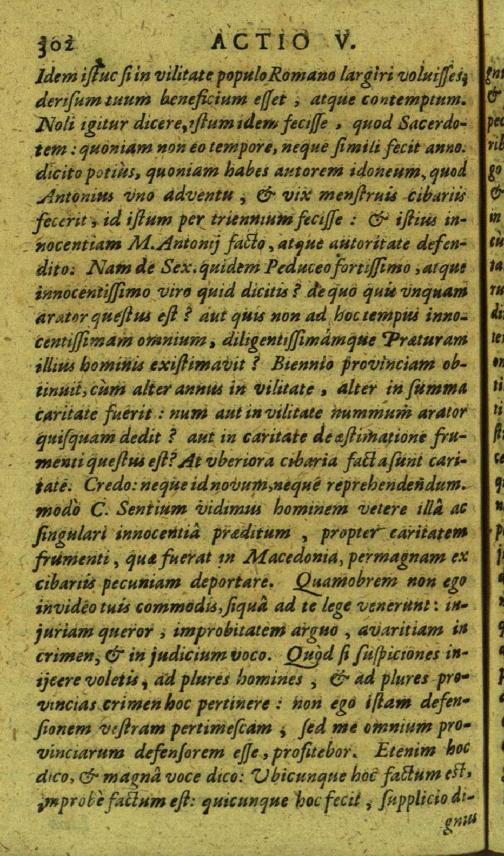 302 ACTIO V.
Idem istuc si in vilitate populo Romano largiri voluisses,
derisum tuum beneficium esset, atque contemptum.
Noli igitur dicere, istum idem fecisse, quod Sacerdo-
tem: quoniam non eo tempore, neque simili fecit anno.
dicito potiùs, quoniam habes autorem idoneum, quod
Antonius vno adventu, & vix menstruis cibariis
fecerit, id istum per triennium fecisse: & istius in-
nocentiam M. Antonij facto, atque autoritate defen-
dito: Nam de Sex. quidem Peduceo fortissimo, atque
innocentissimo viro quid dicitis? de quo quis vnquam
arator questus est? aut quis non ad hoc tempus inno-
centissimam omnium, diligentissimámque Præturam
illius hominis existimavit? Biennio provinciam ob-
tinuit, cùm alter annus in vilitate, alter in summa
caritate fuerit: num aut in vilitate nummum arator
quisquam dedit? aut in caritate de æstimatione fru-
menti questus est? At vberiora cibaria facta sunt cari-
tate. Credo: neque id novum, neque reprehendendum.
modò C. Sentium vidimus hominem vetere illâ ac
singulari innocentiâ præditum, propter caritatem
frumenti, quæ fuerat in Macedonia, permagnam ex
cibariis pecuniam deportare. Quamobrem non ego
invideo tuis commodis, siquâ ad te lege venerunt: in-
juriam queror, improbitatem arguo, avaritiam in
crimen, & in judicium voco. Quòd si suspiciones in-
ijcere voletis, ad plures homines, & ad plures pro-
vincias crimen hoc pertinere: non ego istam defen-
sionem vestram pertimescam, sed me omnium pro-
vinciarum defensorem esse, profitebor. Etenim hoc
dico, & magnâ voce dico: Vbicunque hoc factum est,
improbè factum est: quicunque hoc fecit, supplicio di-
gnus